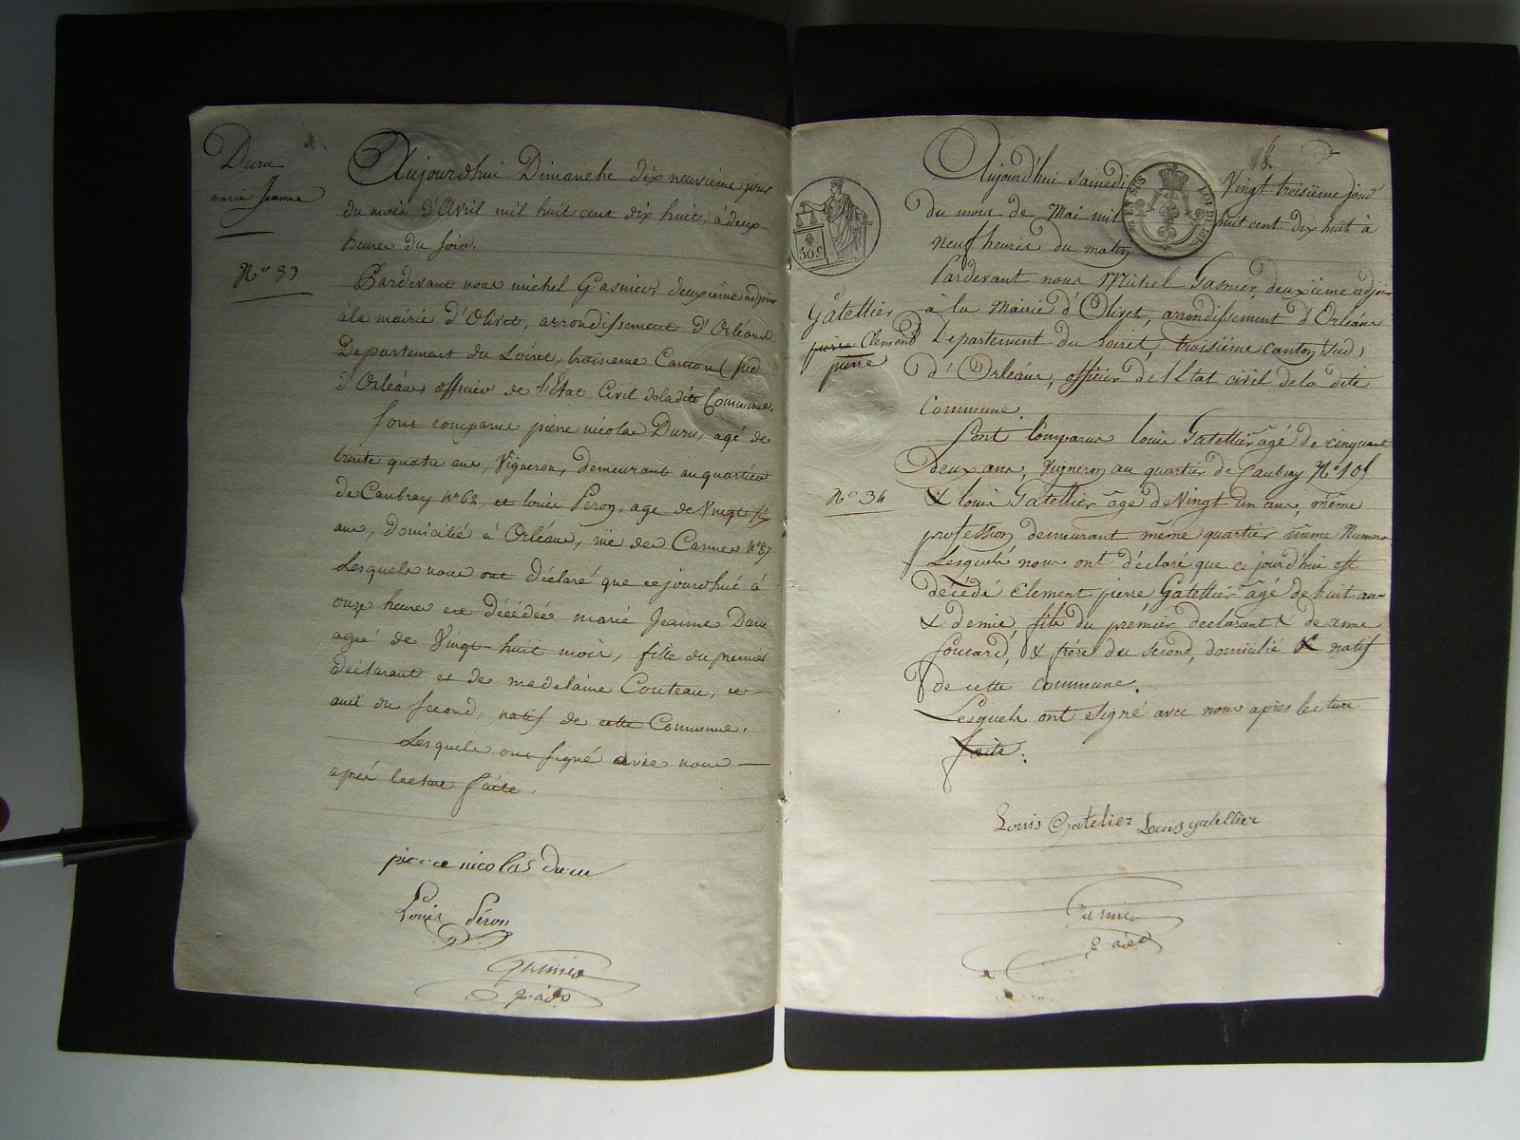 Duru
marie Jeanne
N° 33
Aujourdhui Dimanche dix neuvieme jour
du mois d'Avril mil huit cent dix huit, à deux
heures du soir.
Pardevant nous michel Gasnier, deuxieme adjoint
à la mairie d'Olivet, arrondissement d'Orléans
Departement du Loiret, troisieme Canton Sud
d'Orléans, officier de l'Etat Civil deladite Commune.
Sont comparus pierre nicolas Duru, agé de
trente quatre ans, Vigneron, demeurant au quartier
de Caubray n° 62 et louis Péron, age de Vingt
ans, Domicilié à Orléans, rue des Carmes n° 87
Lesquels nous ont déclaré que cejourdhui à
onze heures est décédée marie Jeanne Duru
agée de Vingt-huit mois, fille du premier
déclarant et de madelaine Couteau, et
amie du second, natif de cette Commune.
Lesquels ont signé avec nous
après lecture faite.
pierre nicolas duru
Louis Péron
Gasnier
2e adjt
18.
Aujourd'hui samedi Vingt troisième jour
du mois de Mai mil huit cent dix huit à
neuf heures du matin
50 c
Pardevant nous Michel Gasnier, deuxieme adjoint
Gâtellier
à la Mairie d'Olivet, arrondissement d'Orléans
pierre Clement
pierre
Departement du Loiret, troisiéme canton Sud
d'Orléans, officier de l'Etat civil de la dite
Commune.
Sont Comparus louis Gatellier âgé de cinquante
deux ans, Vigneron au quartier de Caubray N° 105
N° 34
& louis Gatellier âgé de Vingt un ans, même
profession demeurant même quartier même Numero
Lesquels nous ont déclaré que ce jourd'hui est
décédé Clement pierre Gâtellier âgé de huit ans
& demie, fils du prémier declarant & de anne
Foucard, & frére du second, domicilié & natif
de cette commune.
Lesquels ont signé avec nous après lecture
faite.
Louis Gatelier Louis gatellier
Gasnier
2e adjt